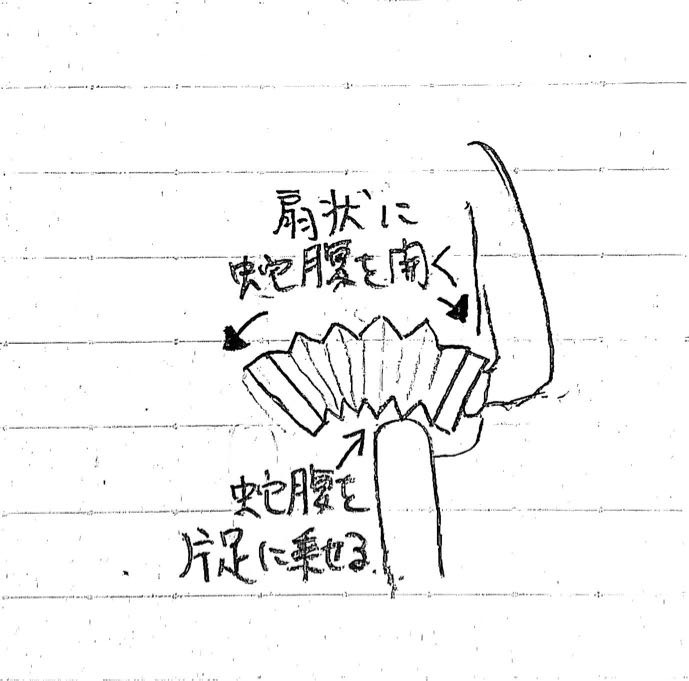 扇状に
蛇腹を開く
蛇腹を
片足に乗せる